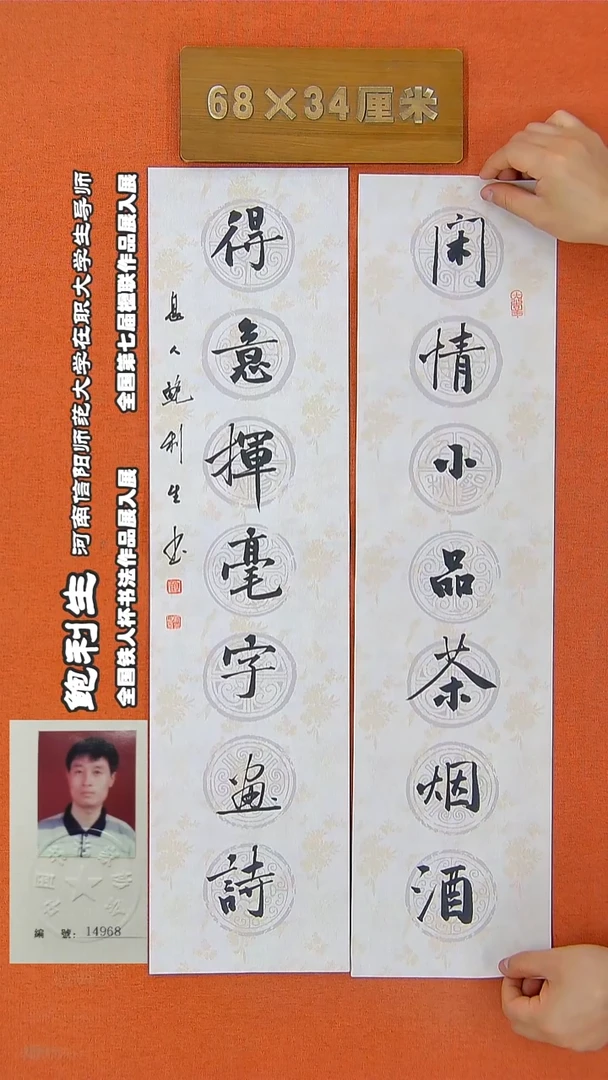 68×34厘米
闲情小品茶烟酒
得意揮毫字画詩
息人鲍利生书
鲍利生 河南信阳师范大学在职大学生导师
全国铁人杯书法作品展入展 全国第七届楹联作品展入展
編號：14968